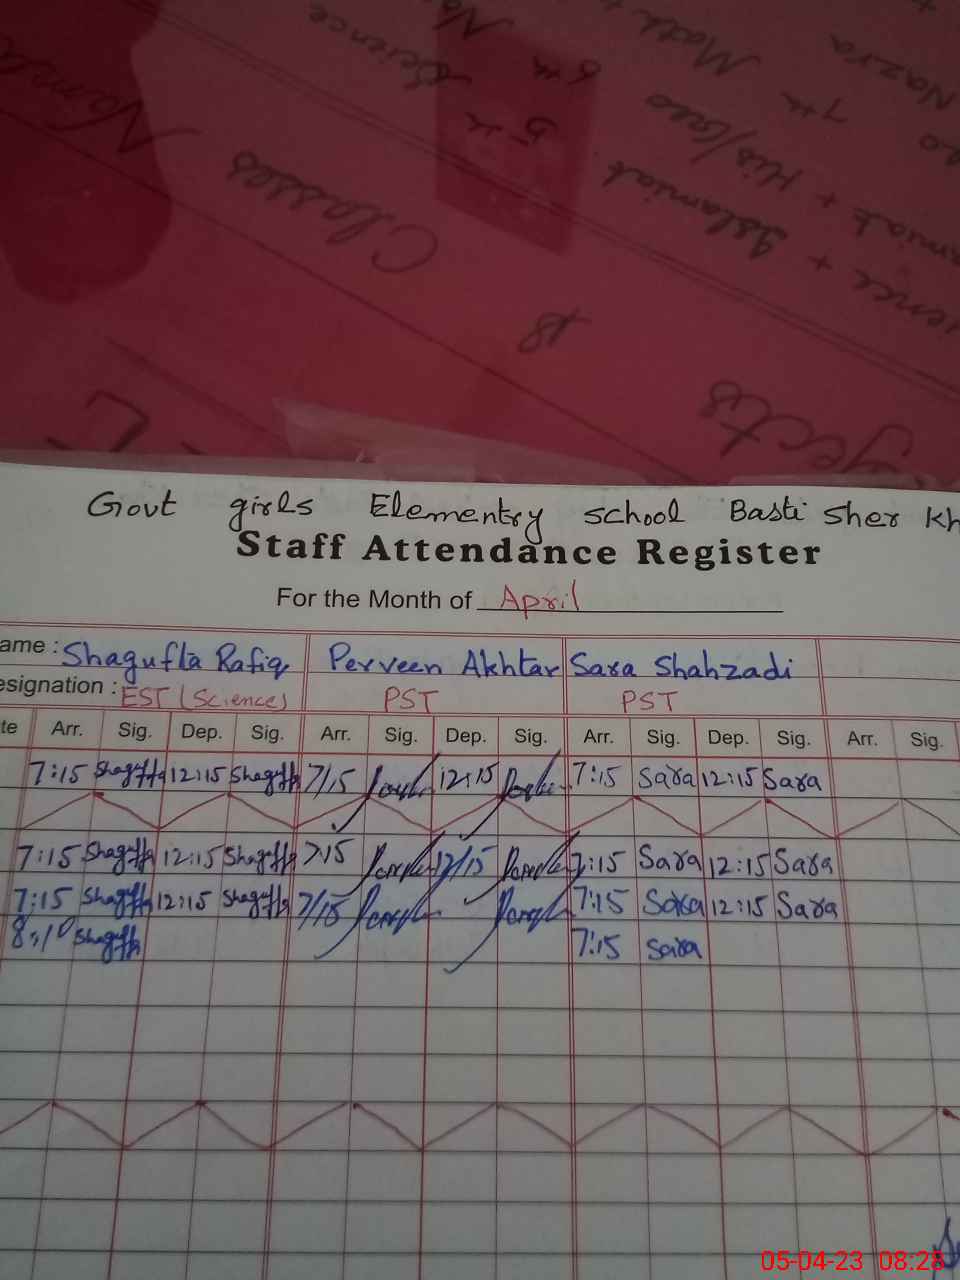 Nazra
Math
6th
7th
Science
5th
His/Geo
Islamiat
Classes
Govt girls Elementry school Basti Sher Kh
Staff Attendance Register
For the Month of April
ame : Shagufta Rafiq Perveen Akhtar Sara Shahzadi
esignation : EST (Science) PST PST
te Arr. Sig. Dep. Sig. Arr. Sig. Dep. Sig. Arr. Sig. Dep. Sig. Arr. Sig.
7:15 Shagufta 12:15 Shagufta 7/15 12:15 7:15 Sara 12:15 Sara
7:15 Shagufta 12:15 Shagufta 7:15 12/15 7:15 Sara 12:15 Sara
7:15 Shagufta 12:15 Shagufta 7/15 7:15 Sara 12:15 Sara
8:10 Shagufta 7:15 Sara
05-04-23 08:28